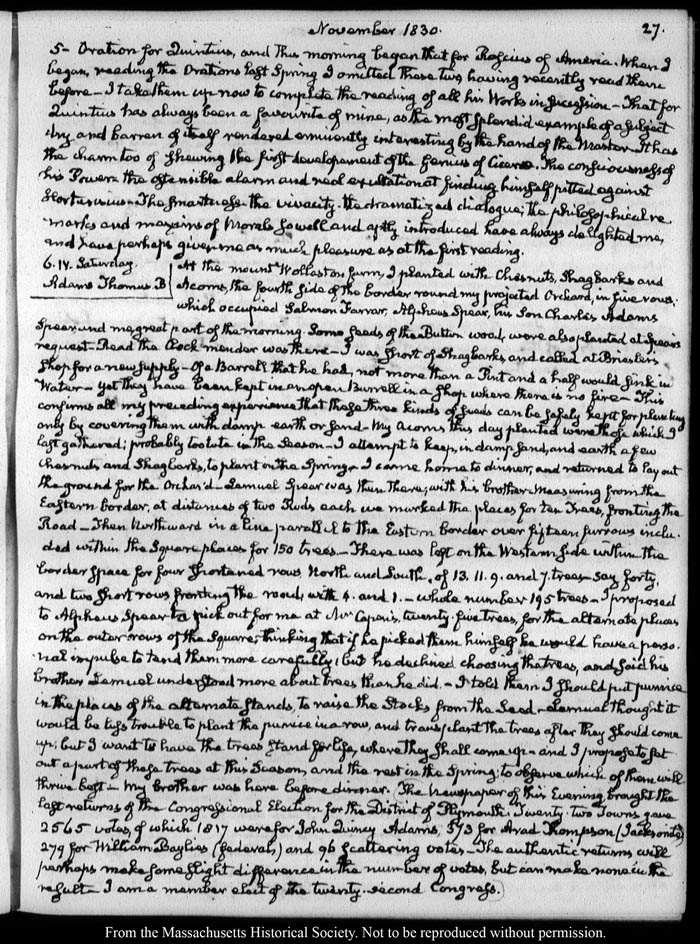 November 1830.
27.
5– Oration for Quintius, and this morning began that for Roscius of Ameria. When I
began, reading the Orations last Spring I omitted these two, having recently read them
before– I take them up now to complete the reading of all his Works in succession– That for
Quintius has always been a favourite of mine, as the most splendid example of a subject
dry and barren of itself rendered eminently interesting by the hand of the Master. It has
the charm too of shewing the first developement of the genius of Cicero. The consciousness of
his Power– the ostensible alarm and real exultation at finding himself pitted against
Hortensius– The smartness– the vivacity– the dramatized dialogue; the philosophical re-
marks and maxims of Morals so well and aptly introduced have always delighted me,
and have perhaps given me as much pleasure as at the first reading.
6. IV. Saturday
Adams Thomas B
At the mount Wollaston farm, I planted with Chesnuts, Shagbarks and
Acorns, the fourth side of the border round my projected Orchard, in five rows,
which occupied Salmon Farrar, Alpheus Spear, his Son Charles Adams
Spear, and me great part of the morning. Some seeds of the Button wood, were also planted at Spear's
request– Read the Clock mender was there– I was short of Shagbarks and called at Briesler's
Shop for a new supply– Of a Barrell that he had, not more than a Pint and a half would sink in
Water– yet they have been kept in an open Barrell in a shop where there is no fire– This
confirms all my preceding experience that these three kinds of seeds can be safely kept for planting
only by covering them with damp earth or sand– My Acorns this day planted were those which I
last gathered; probably too late in the Season– I attempt to keep, in damp sand, and earth a few
Chesnuts and Shagbarks, to plant in the Spring– I came home to dinner, and returned to lay out
the ground for the Orchard– Lemuel Spear was then there, with his brother– Measuring from the
Eastern border, at distances of two Rods each we marked the places for ten Trees, fronting the
Road– Then Northward in a line parallel to the Eastern border over fifteen furrows inclu-
ded within the Square places for 150 trees– There was left on the Western side within the
border space for four shortened rows North and South, of 13. 11. 9. and 7. trees– say forty,
and two short rows fronting the road, with 4. and 1.– whole number 195 trees– I proposed
to Alpheus Spear to pick out for me at Mr Capen's, twenty-five trees, for the alternate places
on the outer rows of the Square; thinking that if he picked them himself he would have a perso-
nal impulse to tend them more carefully; but he declined choosing the trees, and said his
brother Lemuel understood more about trees than he did.– I told them I should put pumice
in the places of the alternate stands, to raise the Stocks from the Seed– Lemuel thought it
would be less trouble to plant the pumice in a row, and transplant the trees after they should come
up; but I want to have the trees stand for life, where they shall come up– and I propose to set
out a part of these trees at this Season, and the rest in the Spring; to observe which of them will
thrive best– My brother was here before dinner. The Newspaper of this Evening, brought the
last returns of the Congressional Election for the District of Plymouth. Twenty-two Towns gave
2565 votes, of which 1817 were for John Quincy Adams, 373 for Arad Thompson (Jacksonite)
279 for William Baylies (federal,) and 96 scattering votes– The authentic returns will
perhaps make some slight difference in the number of votes, but can make none in the
result– I am a member elect of the twenty-second Congress.
From the Massachusetts Historical Society. Not to be reproduced without permission.